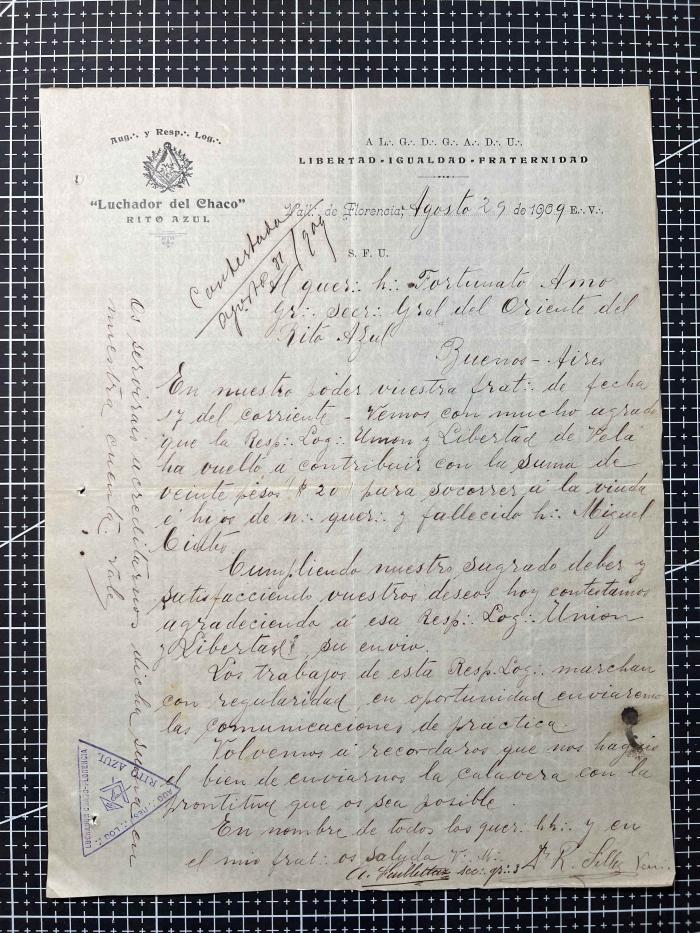 Aug∴ y Resp∴ Log∴
"Luchador del Chaco"
RITO AZUL
A L∴ G∴ D∴ G∴ A∴ D∴ U∴
LIBERTAD - IGUALDAD - FRATERNIDAD
Vall∴ de Florencia, Agosto 29 de 1909 E∴ V∴
S. F. U.
Contestada
agosto 31/909
Al quer∴ h∴ Fortunato Amo
Gr∴ secr∴ Gral del Oriente del
Rito Azul
Buenos-Aires
En nuestro poder vuestra frat∴ de fecha
17 del corriente - Vemos con mucho agrado
que la Resp∴ Log∴ Union y Libertad de Vela
ha vuelto a contribuir con la suma de
veinte pesos ($ 20) para socorrer á la viuda
é hijos de n∴ quer∴ y fallecido h∴ Miguel
Cumpliendo nuestro sagrado deber y
satisfacciendo vuestros deseos hoy contestamos
agradeciendo á esa Resp∴ Log∴ Union
y Libertad, su envio.
Los trabajos de esta Resp∴ Log∴ marchan
con regularidad en oportunidad enviaremos
las comunicaciones de practica.
Volvemos á recordaros que nos hagais
el bien de enviarnos la calavera con la
prontitud que os sea posible.
En nombre de todos los quer∴ hh∴ y en
el mio frat∴ os saluda V∴ M∴
sec∴ gr∴
R.
Ven∴
Os serviréis acreditarnos dicha suma en
nuestra cuenta Vale
AUG∴ RES∴ LOG∴
RITO AZUL
LUCHADOR CHACO-FLORENCIA